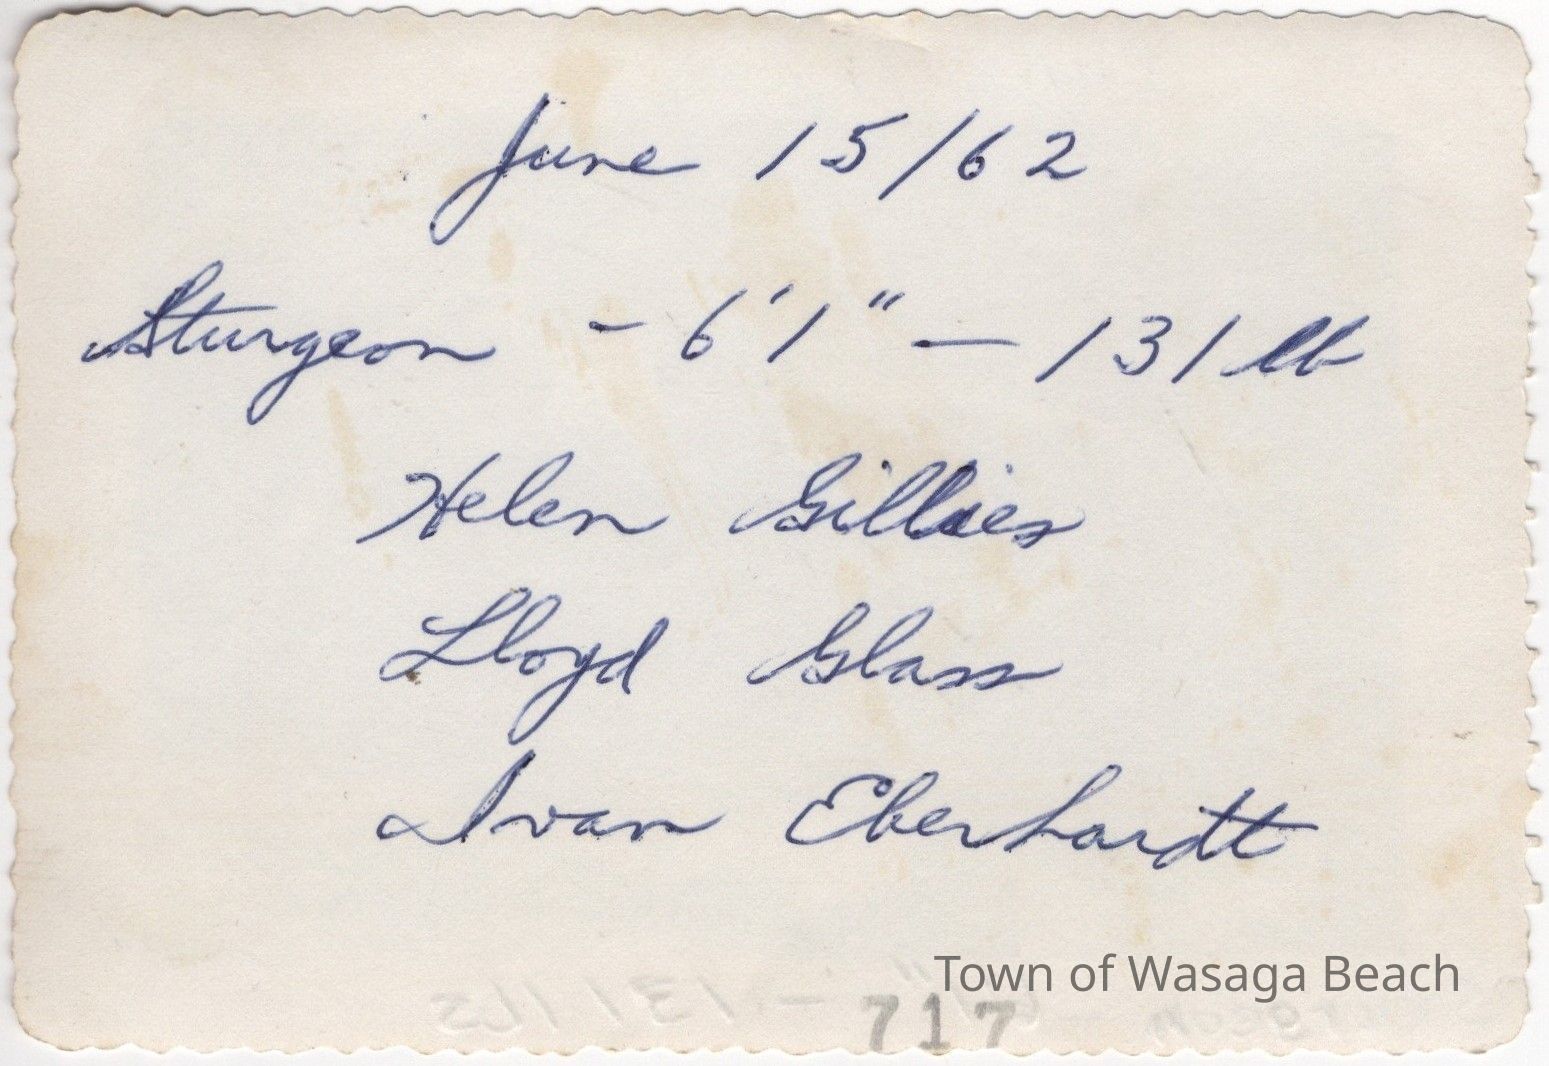 June 15/62
Sturgeon - 6'1" — 131 lb
Helen Gillies
Lloyd Glass
Ivan Eberhardt
Town of Wasaga Beach
717